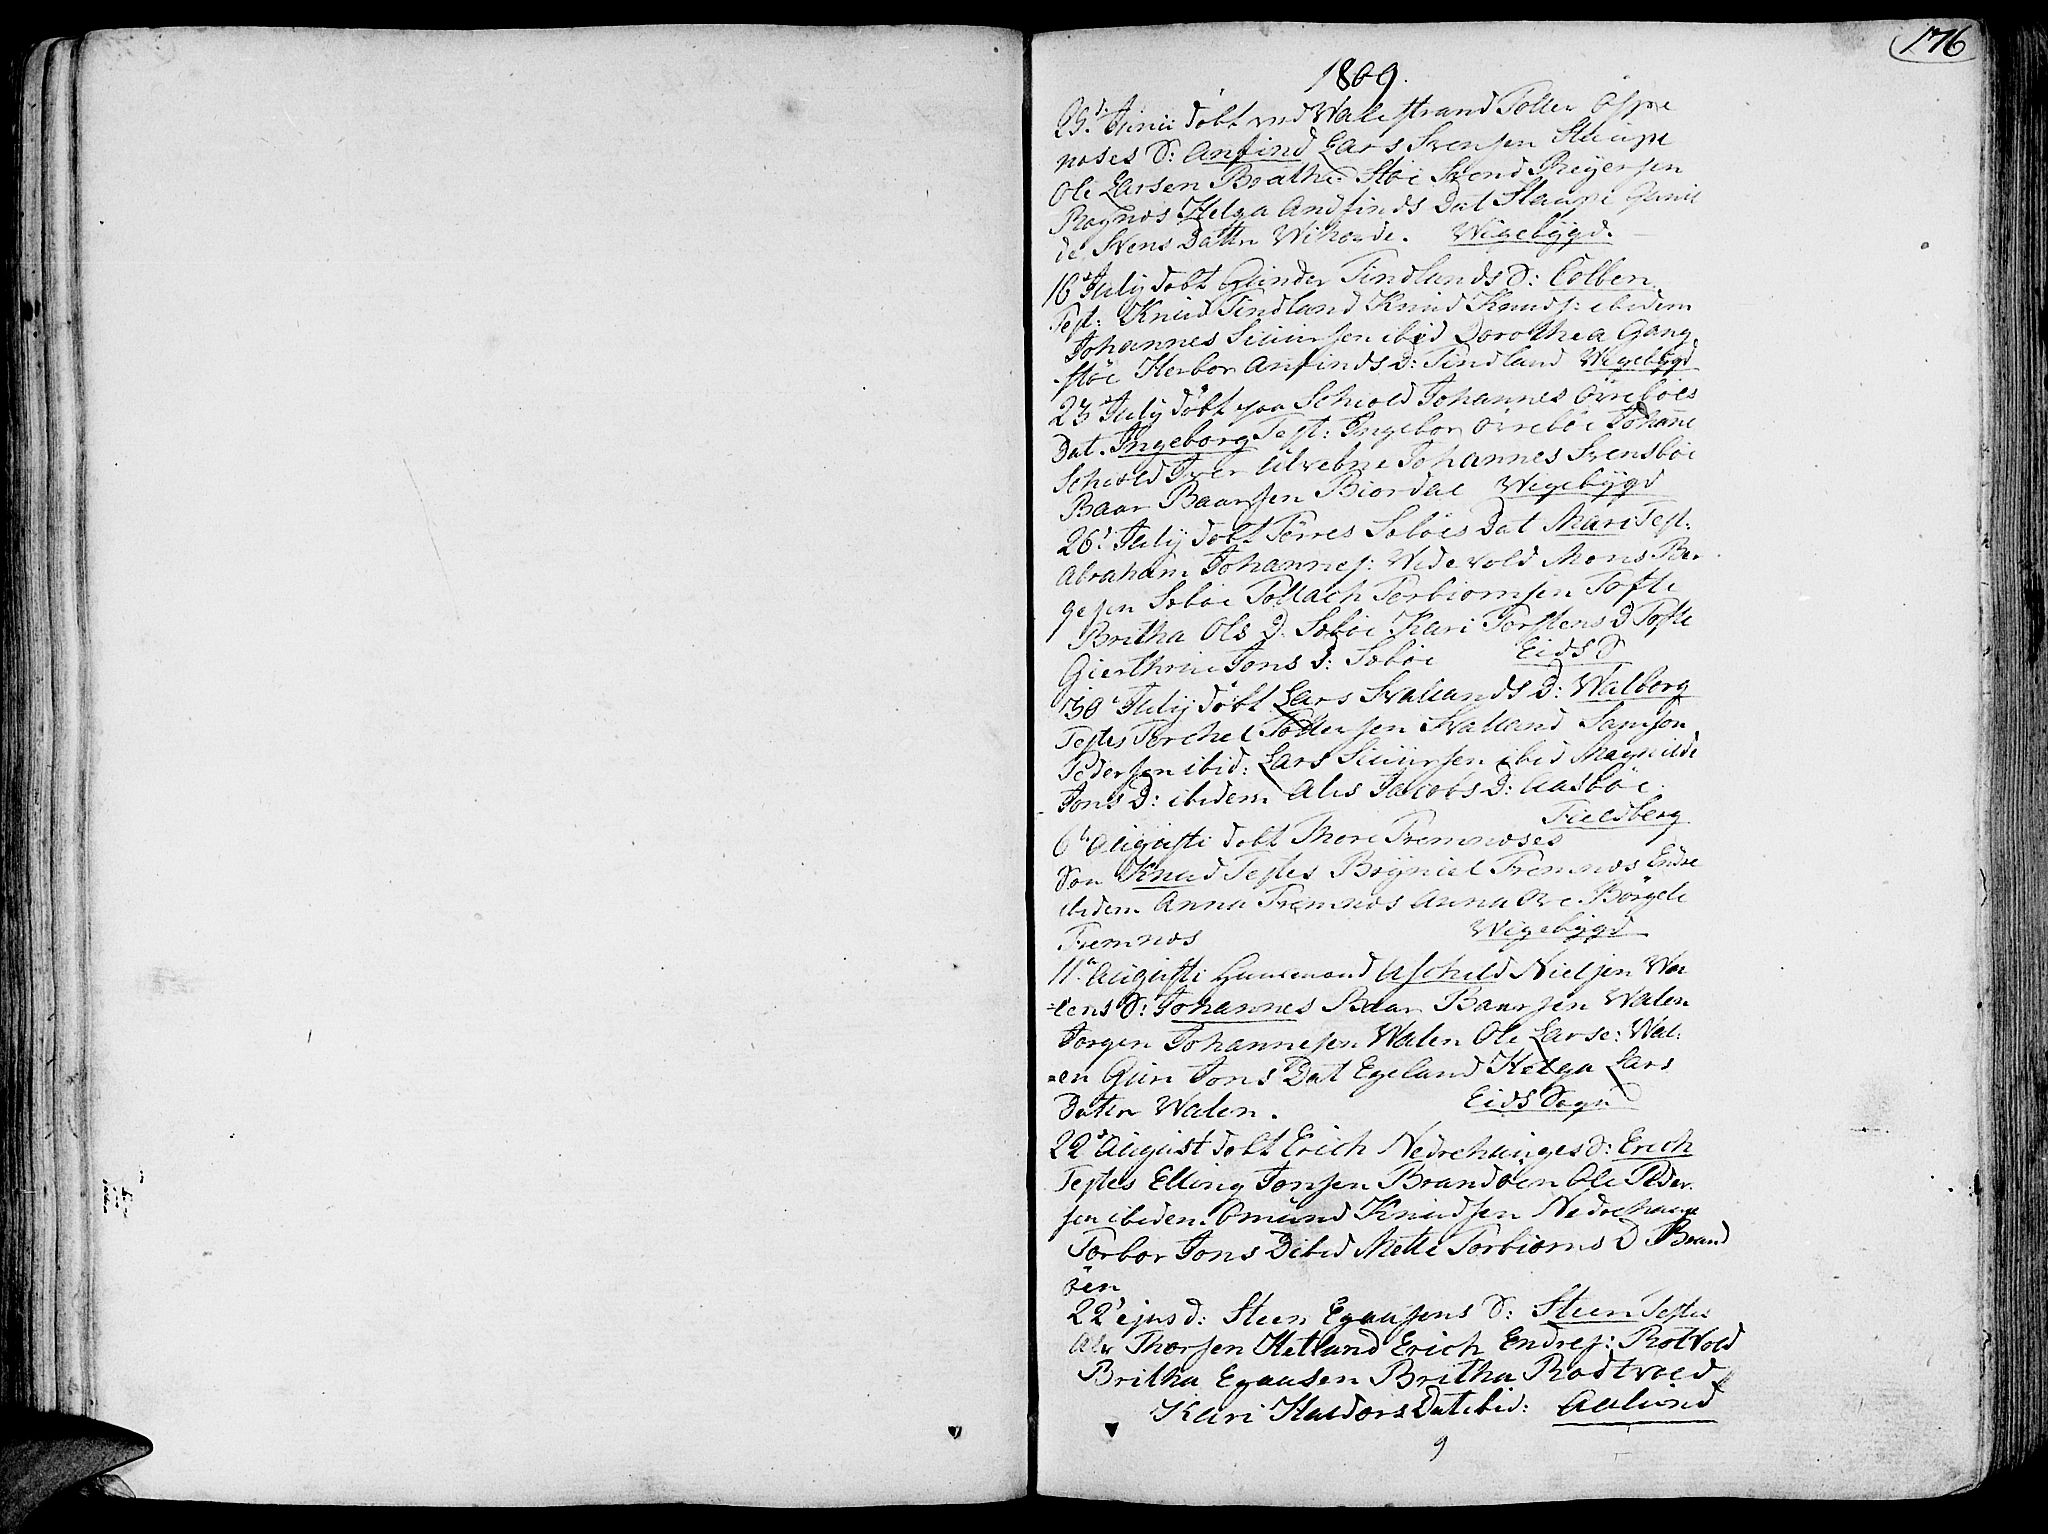 176
1809.
25.d Junii døbt ved Walestrand Toller Ospe
noses S: Anfind Lars Svensen Staupe
Ole Larsen Brathe Støe Svend Greyersen
Ragnøs Helga Andfinds Dat Staupe Gunil
de Svens Datter Wikøede. Wigebÿgd.
16 Julij døbt Gunder Tindlands S: Colben
Test: Knud Tindland Knud Knuds: ibidem
Johannes Siursen ibid Dorothea Gang
støe Herbor Anfinds D: Tindland Wigebÿgd
23 Julij døbt paa Schiold Johannes Øvrebøes
Dat. Ingeborg Test: Ingebor Øvrebøe Johañe
Schiold Iver Ulvebne Johannes Svensbøe
Baar Baarsen Biordal Wigebÿgd
26. Julij døbt Tørres Søbøes Dat Mari Test:
Abraham Johannes: Widevold Mons Bør
gesen Søbøe Tollach Torbiornsen Tofte
Britha Ols D. Søbøe Kari Torstens D Tofte
Gierthrue Jons D: Søbøe Eids S
30 Julij døbt Lars Svallands D: Walborg
Testes Torchel Tollersen Svalland Samson
Pedersen ibid: Lars Siursen ibid Magnilde
Jons D: ibidem Alis Jacobs D: Aasbøe.
Fieldberg
6 Augusti døbt Thore Tremnoses
Søn Knud Testes Brÿniel Tremnos Endre
ibidem Anna Tremnos Anna Ove Børgele
Tremnos Wigebÿgd
11. Augusti Huusmand Aschild Nielsen Wa
=lens S: Johannes Baar Baarsen Walen
Jørgen Johannesen Walen Ole Larse: Wal:
=en Guri Jons Dat Egeland Helga Lars
Dater Walen. Eids Sogn
22 August døbt Erich Nedrehauges S: Erich
Testes Elling Jonsen Brandøen Ole Peder
sen ibidem. Omund Knudsen Nedrehauge
Torbor Jons D ibid Mette Torbiorns D Brand
øen
22 ejusd: Steen Egaasens S: Steen Testes
Ale Thorsen Hetland Erich Endres: Rotvold
Britha Egaasen Britha Rodtvold
Kari Haldors Dat ibid: Aalund
9